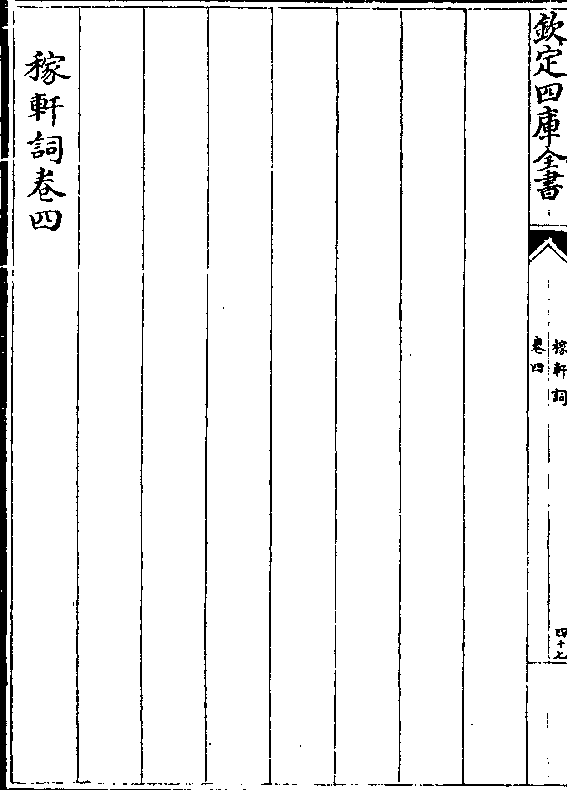 欽定四庫全書
稼軒詞
卷四
四十七
稼軒詞卷四